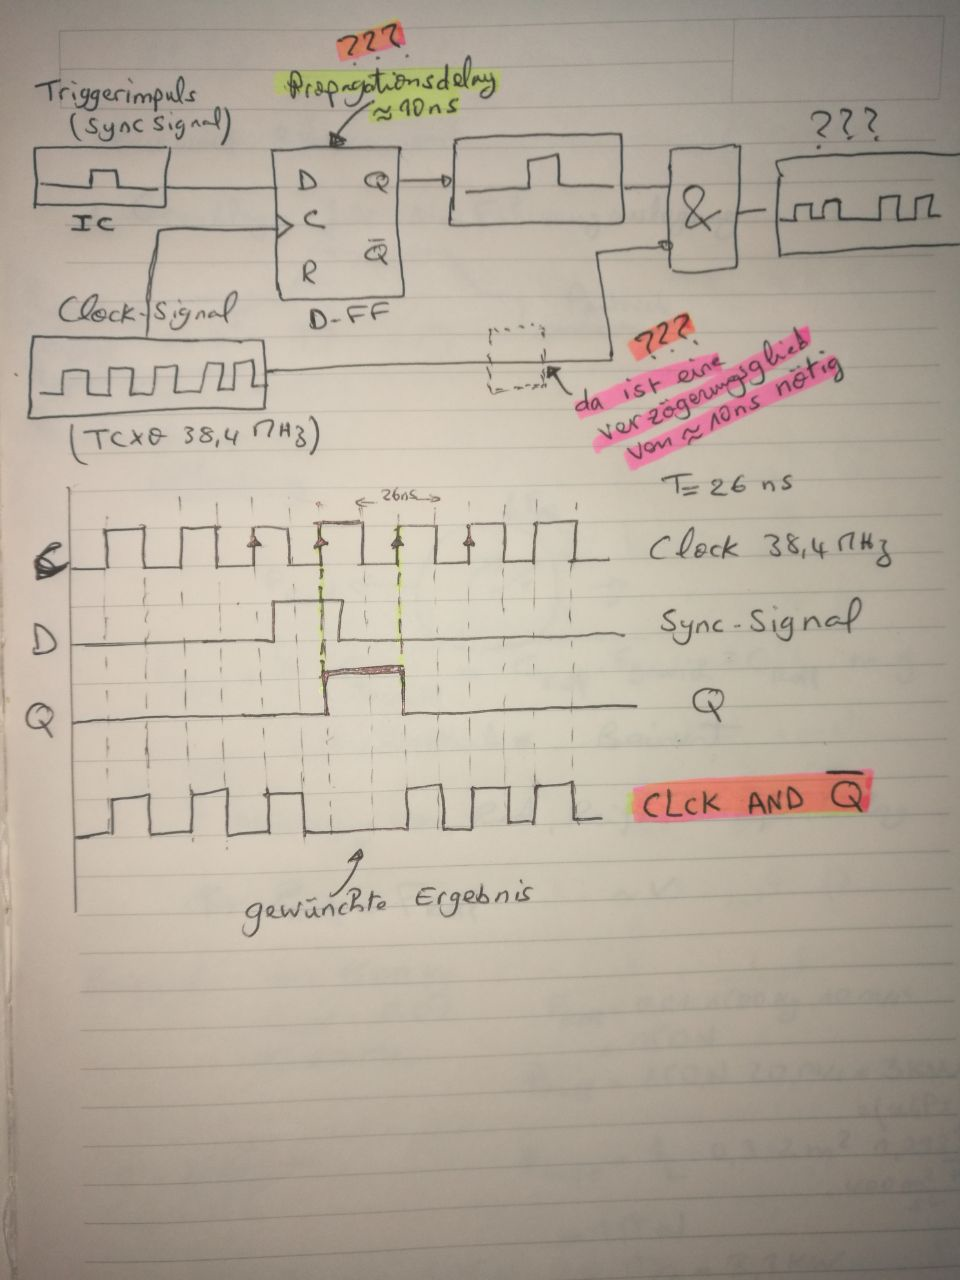 ???
Propagationsdelay
≈10ns
Triggerimpuls
(Sync Signal)
???
IC
D Q
C
Q̅
R
D-FF
&
Clock-Signal
(TCXO 38,4 MHz)
???
da ist eine
verzögerungsglied
von ≈10ns nötig
T=26 ns
26ns
Clock 38,4 MHz
D
Sync-Signal
Q
Q
CLCK AND Q̅
gewünchte Ergebnis